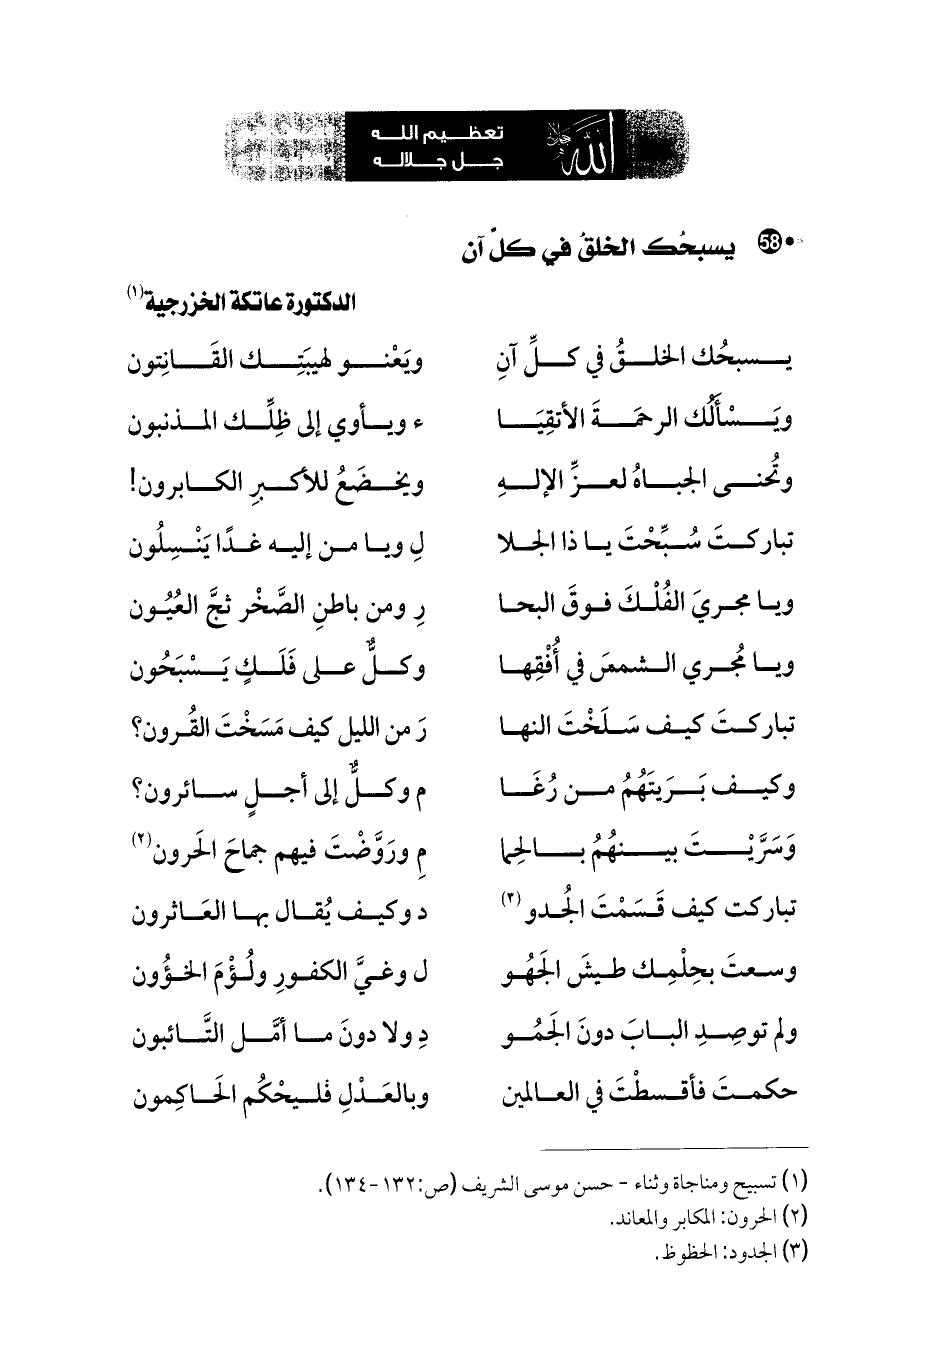 تعظيم الله
جل جلاله
الله جل جلاله
58 يسبحُك الخلقُ في كلِّ آن
الدكتورة عاتكة الخزرجية(١)
يسبحُك الخلقُ في كلِّ آنِ ويَعْنو لهيبَتِك القَانِتون
ويَسْأَلُك الرحمَةَ الأتقِيَا ء ويأوي إلى ظِلِّك المذنبون
وتُحنى الجباهُ لعزِّ الإلهِ ويخضَعُ للأكبرِ الكابرون!
تباركتَ سُبِّحْتَ يا ذا الجلا لِ ويا من إليه غدًا يَنْسِلُون
ويا مجريَ الفُلْكَ فوقَ البحا رِ ومن باطنِ الصَّخْر ثجَّ العُيُون
ويا مُجري الشمسَ في أُفْقِها وكلٌّ على فَلَكٍ يَسْبَحُون
تباركتَ كيف سَلَخْتَ النها رَ من الليل كيف مَسَخْتَ القُرون؟
وكيف بَرَيتَهُمُ من رُغَا م وكلٌّ إلى أجلٍ سائرون؟
وَسَرَّيْتَ بينهُمُ بالحِما مِ ورَوَّضْتَ فيهم جماحَ الحَرون(٢)
تباركت كيف قَسَمْتَ الجُدو(٣) د وكيف يُقال بها العَاثرون
وسعتَ بحِلْمِك طيشَ الجَهُو ل وغيَّ الكفورِ ولُؤْمَ الخؤُون
ولم توصِدِ البابَ دونَ الجَمُو دِ ولا دونَ ما أمَّل التَّائبون
حكمتَ فأقسطْتَ في العالمين وبالعَدْلِ فليحْكُم الحَاكِمون
(١) تسبيح ومناجاة وثناء - حسن موسى الشريف (ص:١٣٢-١٣٤).
(٢) الحرون: المكابر والمعاند.
(٣) الجدود: الحظوظ.